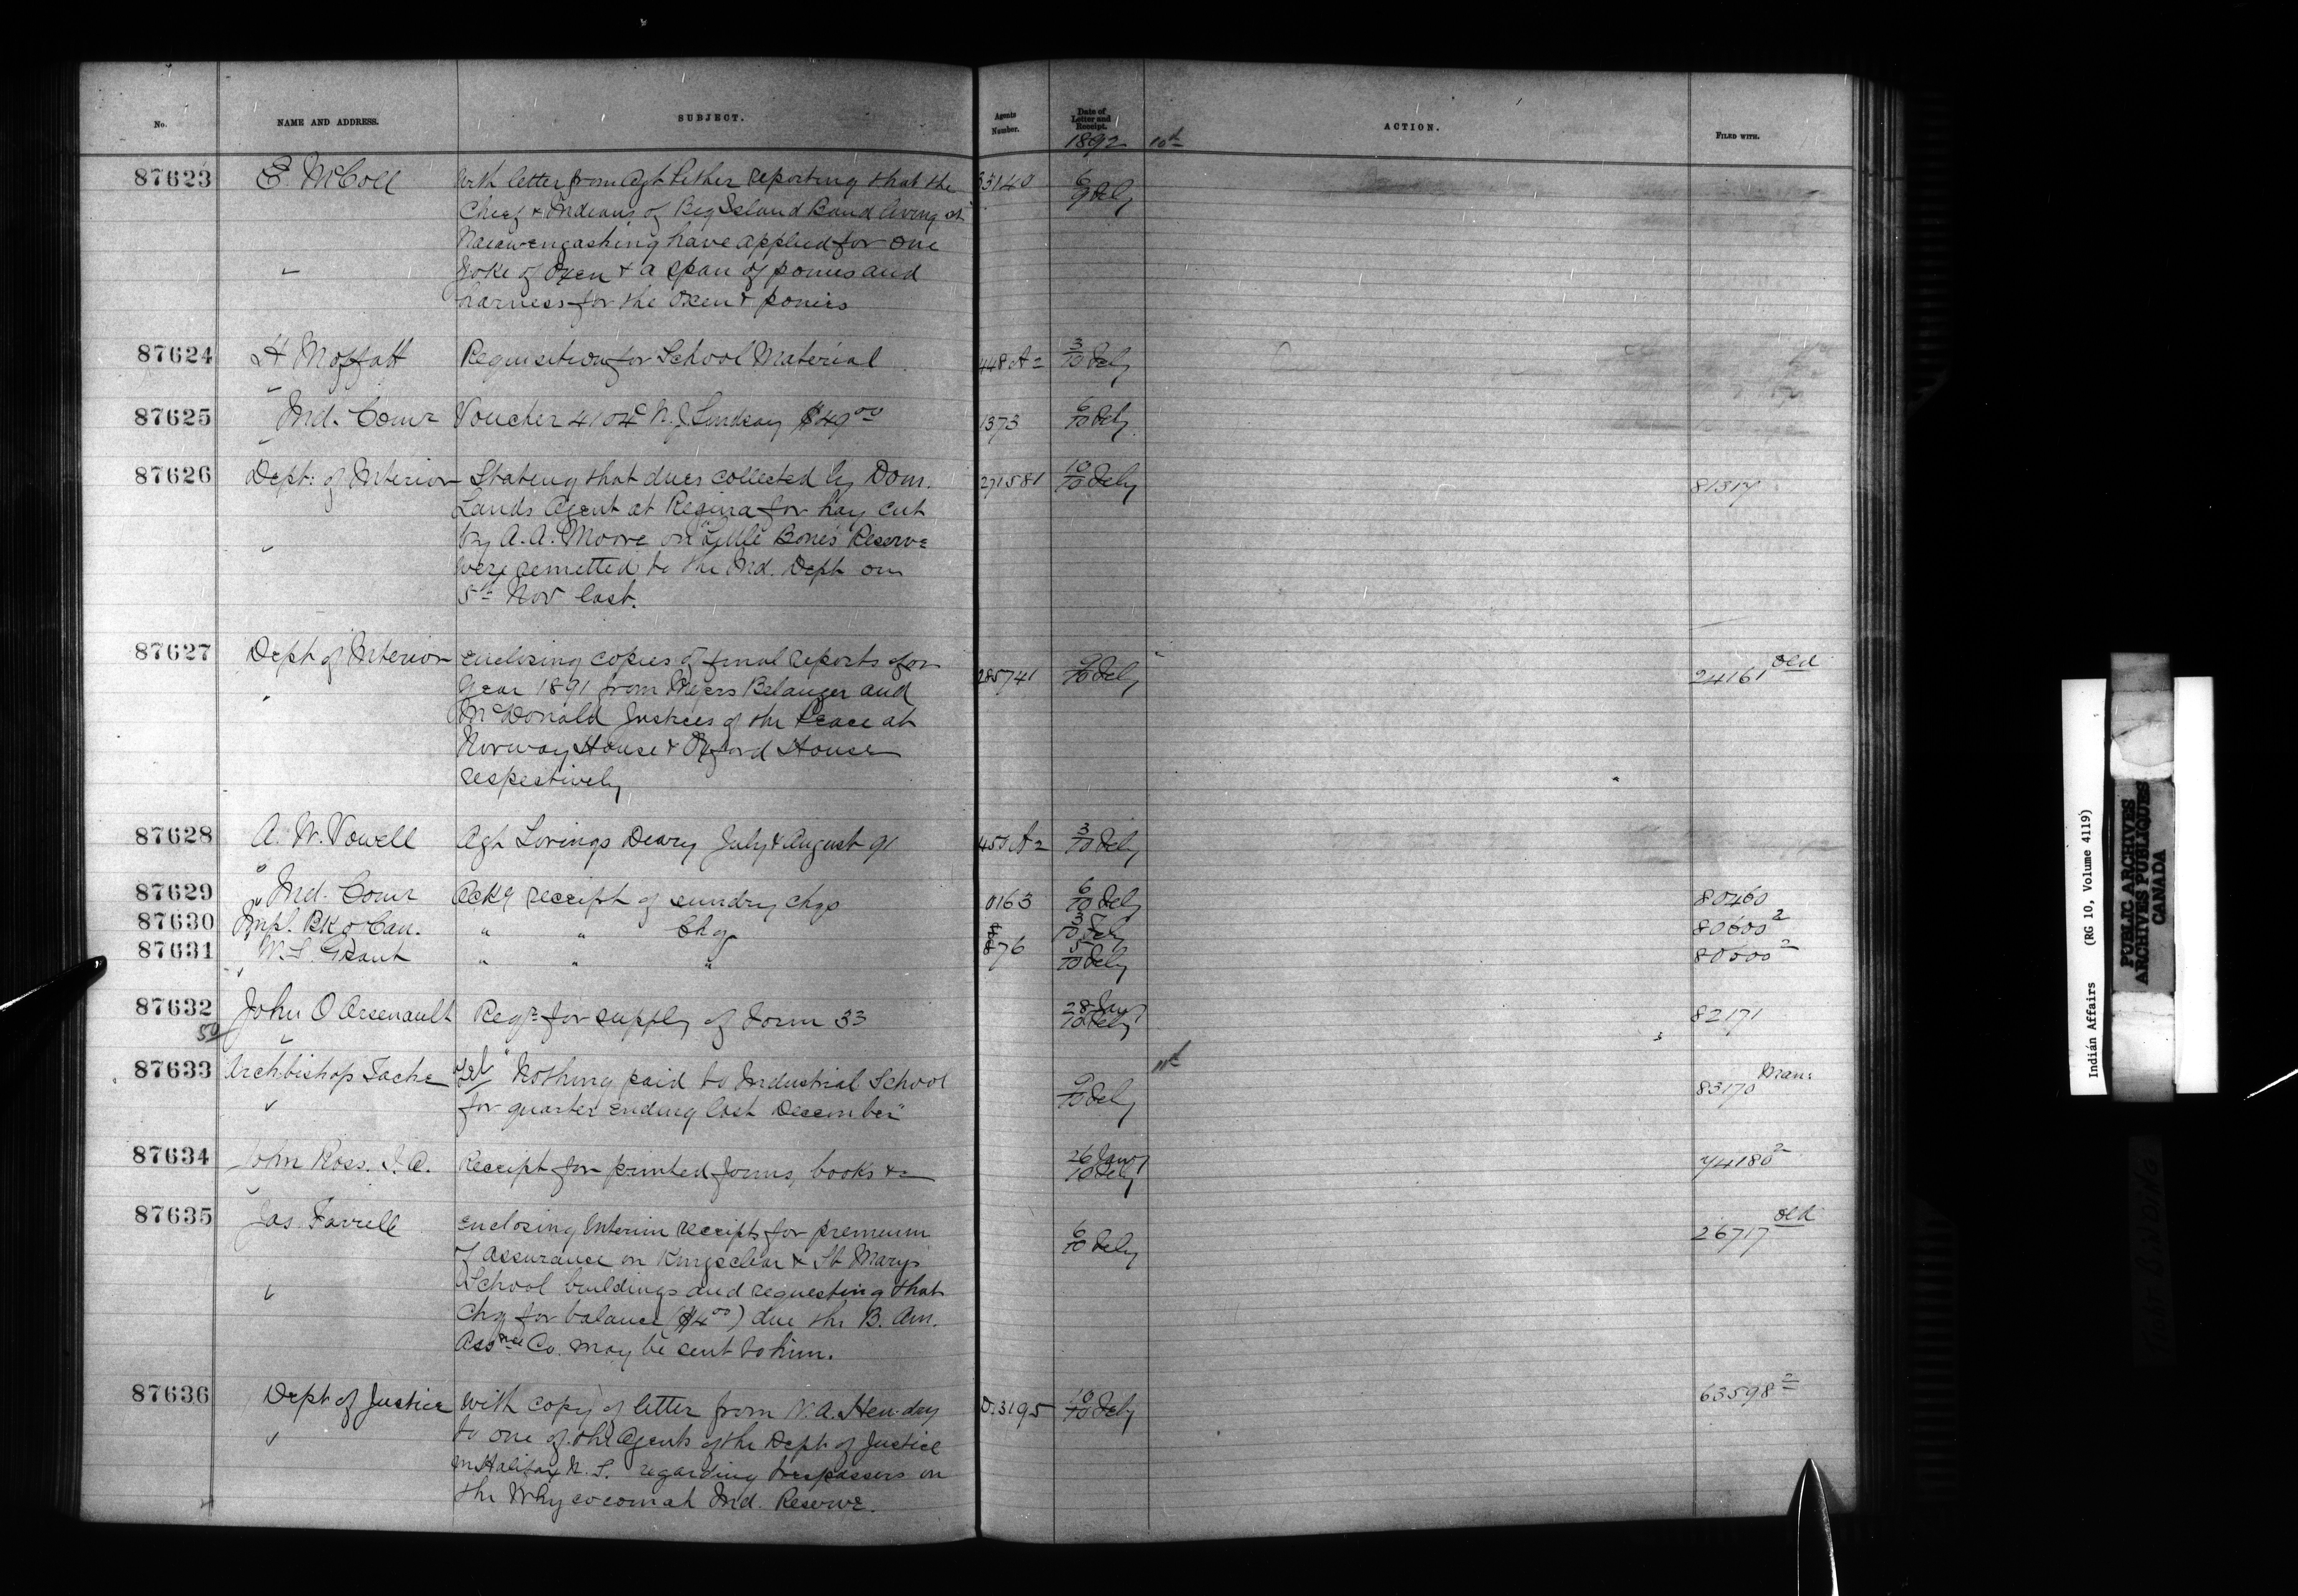 No.
NAME AND ADDRESS.
SUBJECT.
Agents Number.
Date of Letter and Receipt.
1892
10th
ACTION.
FILED WITH.
87623 E. McColl With letter from Agt Pither reporting that the 33140 6
Chief & Indians of Big Island Band living at 9 Feby
have applied for one
Yoke of Oxen & a span of ponies and
harness for the Oxen & ponies
87624 H Moffatt Requisition for School Material 448 A2 3
10 Feby
87625 Ind. Comr Voucher 4104 N. J. Lindsay $49.00 1373 6
10 Feby
87626 Dept: of Interior Stating that dues collected by Dom. 271581 10 81317
Lands Agent at Regina for hay cut 10 Feby
by A. A. Moore on "Little Bone's Reserve
were remitted to the Ind. Dept on
5th Nov last.
87627 Dept of Interior Enclosing copies of final reports for 9 24161 old
Year 1891 from Messrs Belanger and 285741 10 Feby
McDonald Justices of the Peace at
Norway House & Oxford House
respectively
87628 A. W. Vowell Agt Lorings Diary July & August 91 450 A2 3
10 Feby
87629 Ind. Comr Ackg receipt of sundry chqs 0163 6 80460
10 Feby
87630 Impl. Bk of Can. " " Chq 3 80600 2
10 Feby
87631 W. S. Grant " " " 876 5 80600 2
10 Feby
87632 John O Arsenault Reqn for supply of Form 33 28 Jany 82171
50 10 Feby
11th
87633 Archbishop Tache Tel "Nothing paid to Industrial School 9 83170 Man:
for quarter ending last December" 10 Feby
87634 John Ross. I. A. Receipt for printed forms, books &c 26 Jany 74180 2
10 Feby
87635 Jas. Farrell Enclosing Interim receipts for premium 6 26717 old
of assurance on Kingsclear & St Marys 10 Feby
School buildings and requesting that
Chq for balance ($4.00) due the B. Am.
Assnce Co. may be sent to him.
87636 Dept of Justice With copy of letter from W. A. Hendry D. 3195 10 63598 2
to one of the Agents of the Dept of Justice 10 Feby
in Halifax N. S. regarding trespassers on
the Whycocomah Ind. Reserve.
Indian Affairs (RG 10, Volume 4119)
PUBLIC ARCHIVES
ARCHIVES PUBLIQUES
CANADA